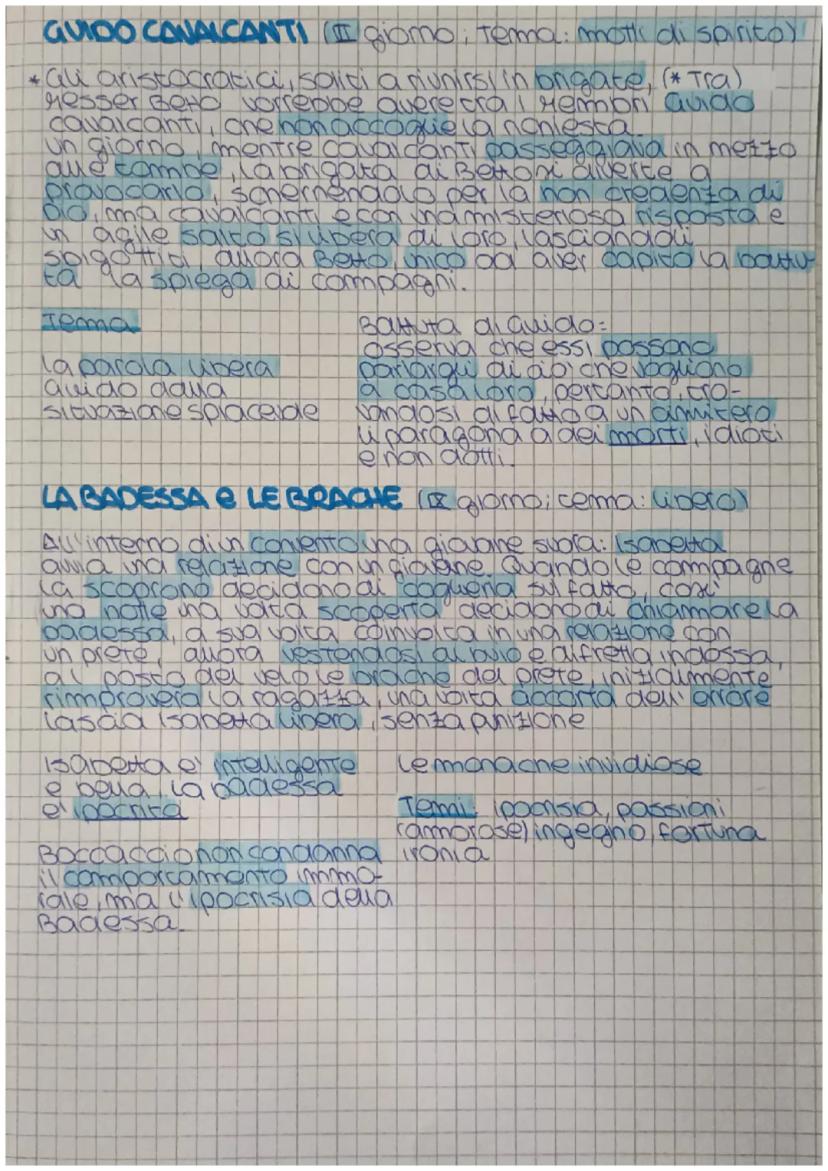 GUIDO CAVALCANTI (II giorno; Tema: motti di spirito)
* Gli aristocratici, soliti a riunirsi in brigate, (* Tra)
Messer Betto vorrebbe avere tra i membri Guido
Cavalcanti, che non accoglie la richiesta.
Un giorno, mentre Cavalcanti passeggiava in mezzo
alle tombe, la brigata di Betto si diverte a
provocarlo, schernendolo per la non credenza di
Dio, ma Cavalcanti e con una misteriosa risposta e
un agile salto si libera di loro, lasciandoli
sbigottiti, allora Betto, unico ad aver capito la battu-
ta la spiega ai compagni.
Tema
La parola libera
Guido dalla
situazione spiacevole
Battuta di Guido:
osserva che essi possono
parlargli di ciò che vogliono
a casa loro, pertanto, tro-
vandosi di fatto a un cimitero
li paragona a dei morti, idioti
e non dotti.
LA BADESSA e LE BRACHE (IX giorno; tema: libero)
All'interno di un convento una giovane suora: Isabetta
avvia una relazione con un giovane. Quando le compagne
la scoprono decidono di coglierla sul fatto, così
una notte una volta scoperta decidono di chiammare la
badessa, a sua volta coinvolta in una relazione con
un prete, allora vestendosi al buio e di fretta indossa,
al posto del velo le brache del prete, inizialmente
rimprovera la ragazza, una volta accorta dell'errore
lascia Isabetta libera, senza punizione
Isabetta e' intelligente
e bella, la badessa
e' ipocrita
Le monache invidiose
Temi: ipocrisia, passioni
(ammorose) ingegno, fortuna
ironia
Boccaccio non condanna
il comportamento immo-
rale, ma l'ipocrisia della
Badessa.